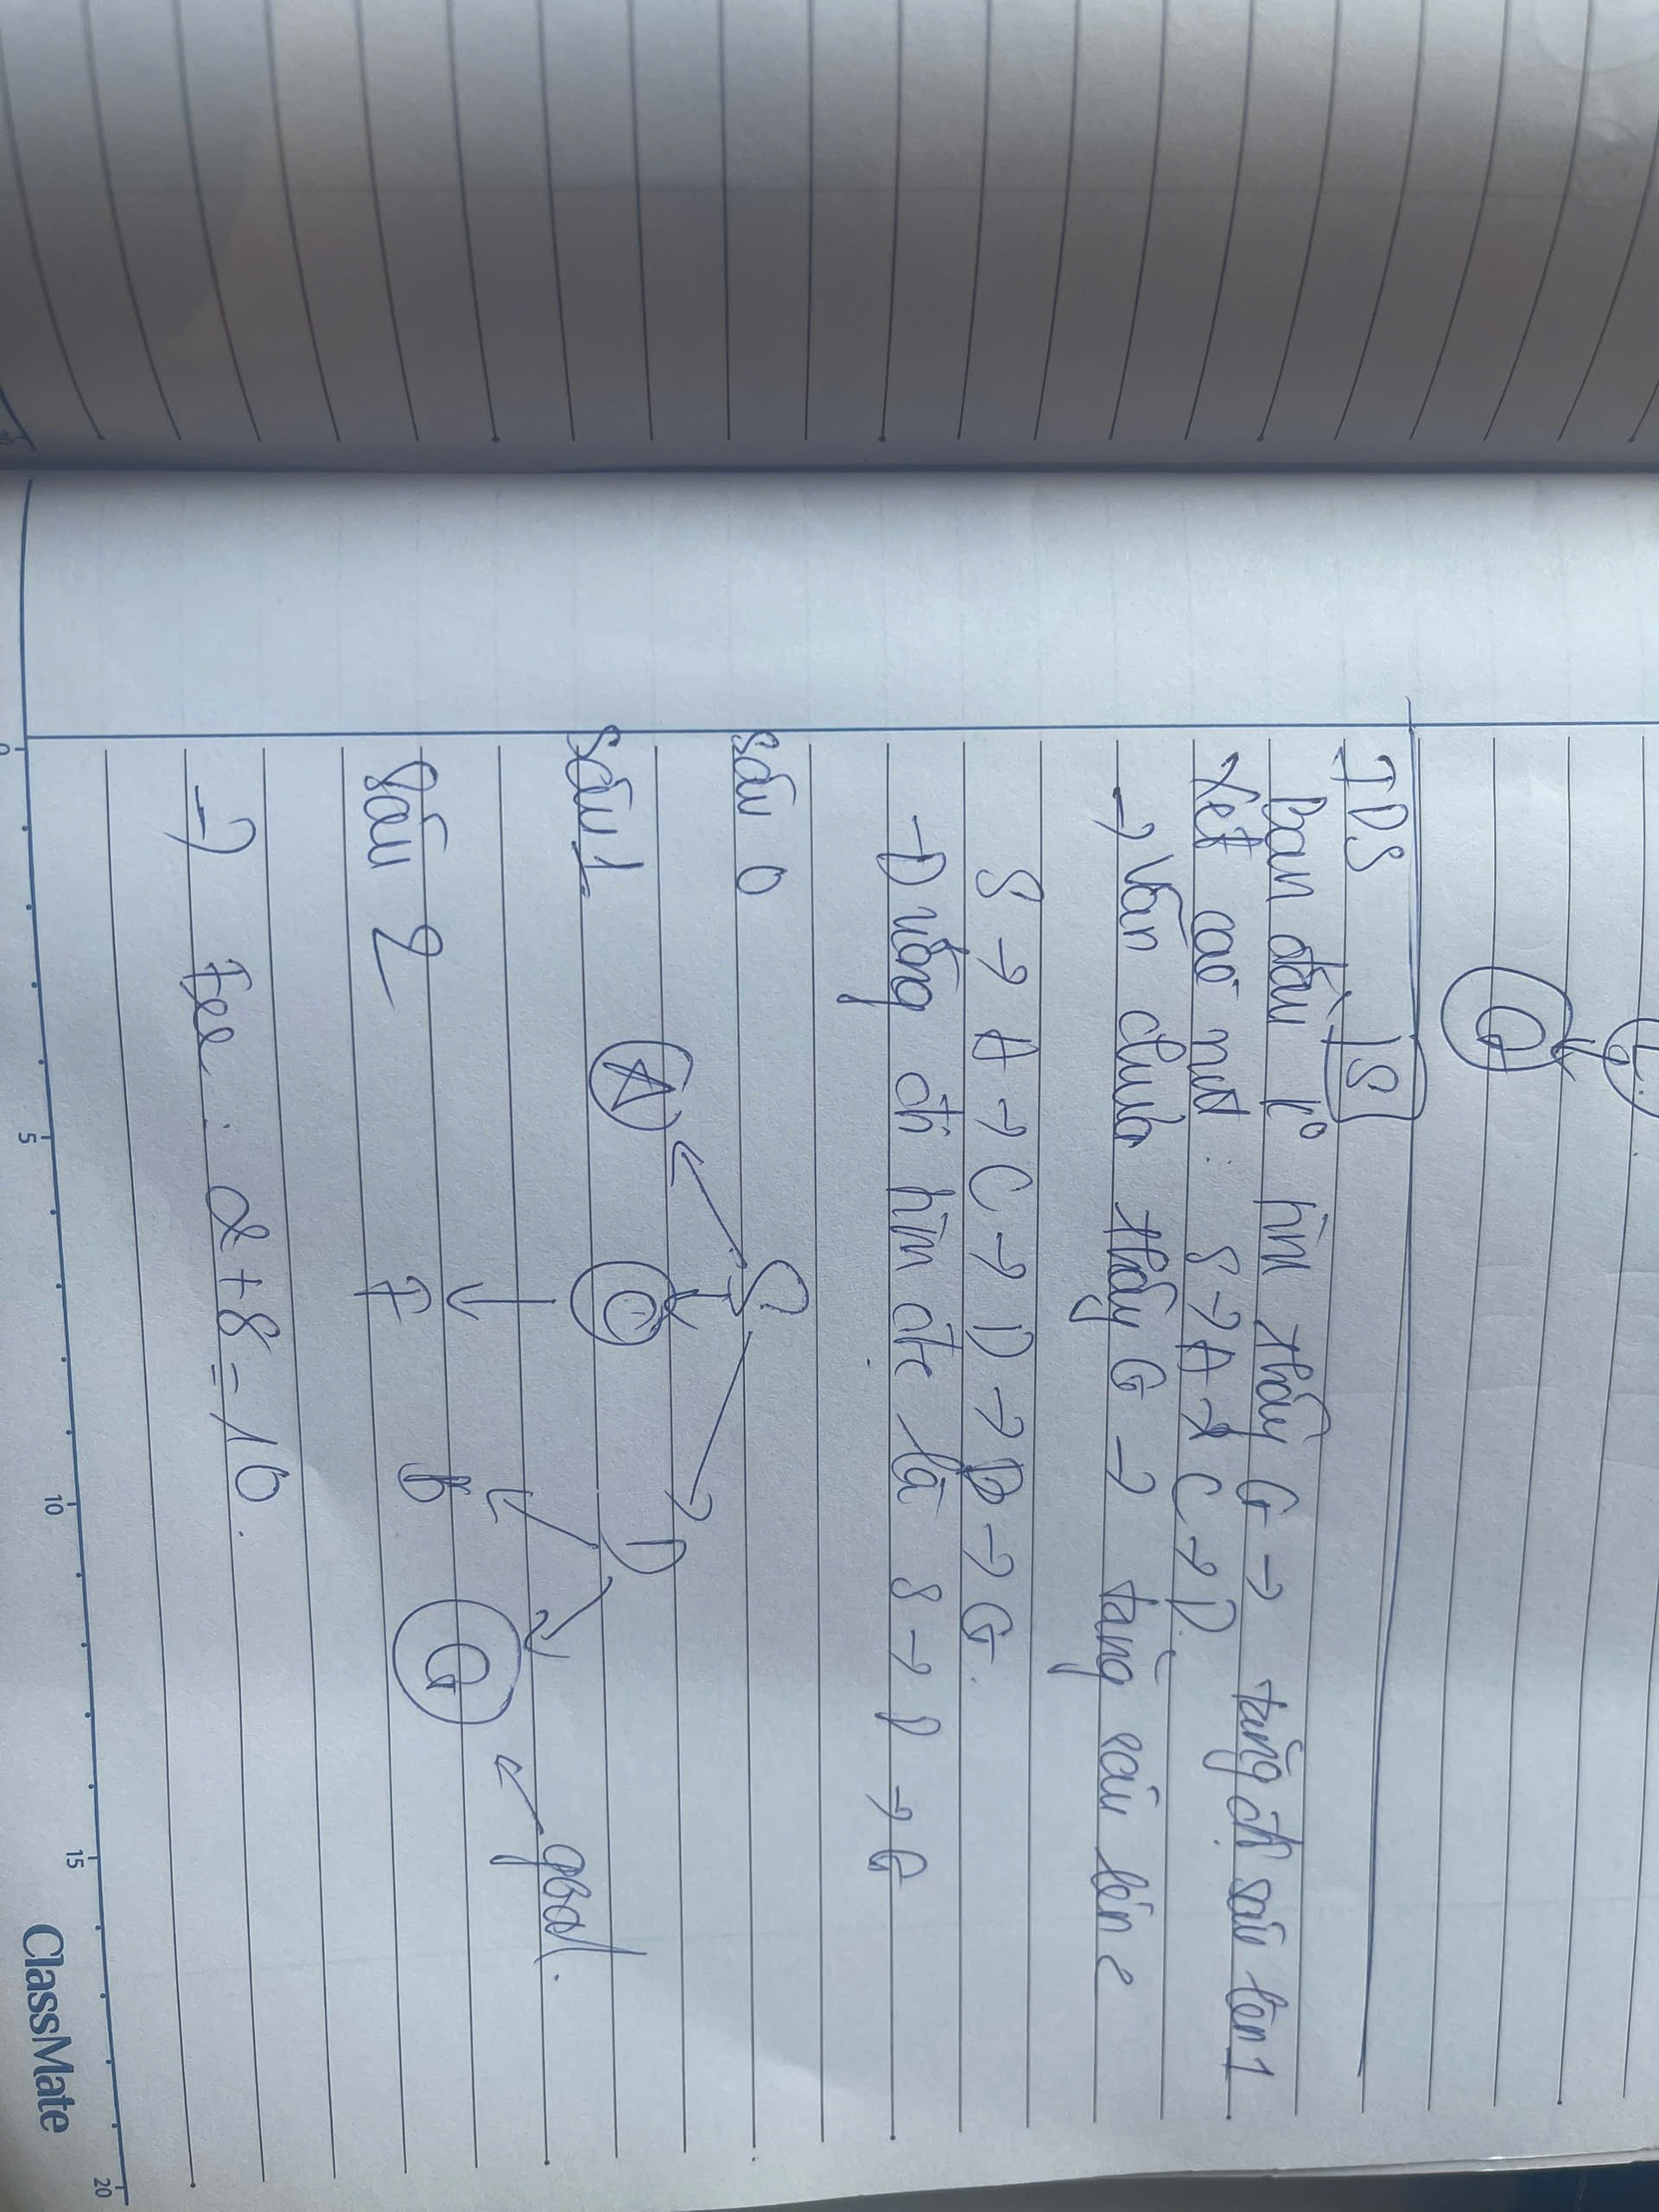 G
IDS
S
Ban đầu ko tìm thấy G → tăng độ sâu lên 1
Xét các nút : S → A → C → D.
→ Vẫn chưa thấy G → tăng sâu lên 2
S → A → C → D → → G.
→ Đường đi tìm đc là S → D → G
sâu 0 S
sâu 1 A C D
sâu 2 F B G goal.
→ : 2 + 8 = 10.
0 5 10 15 20
ClassMate